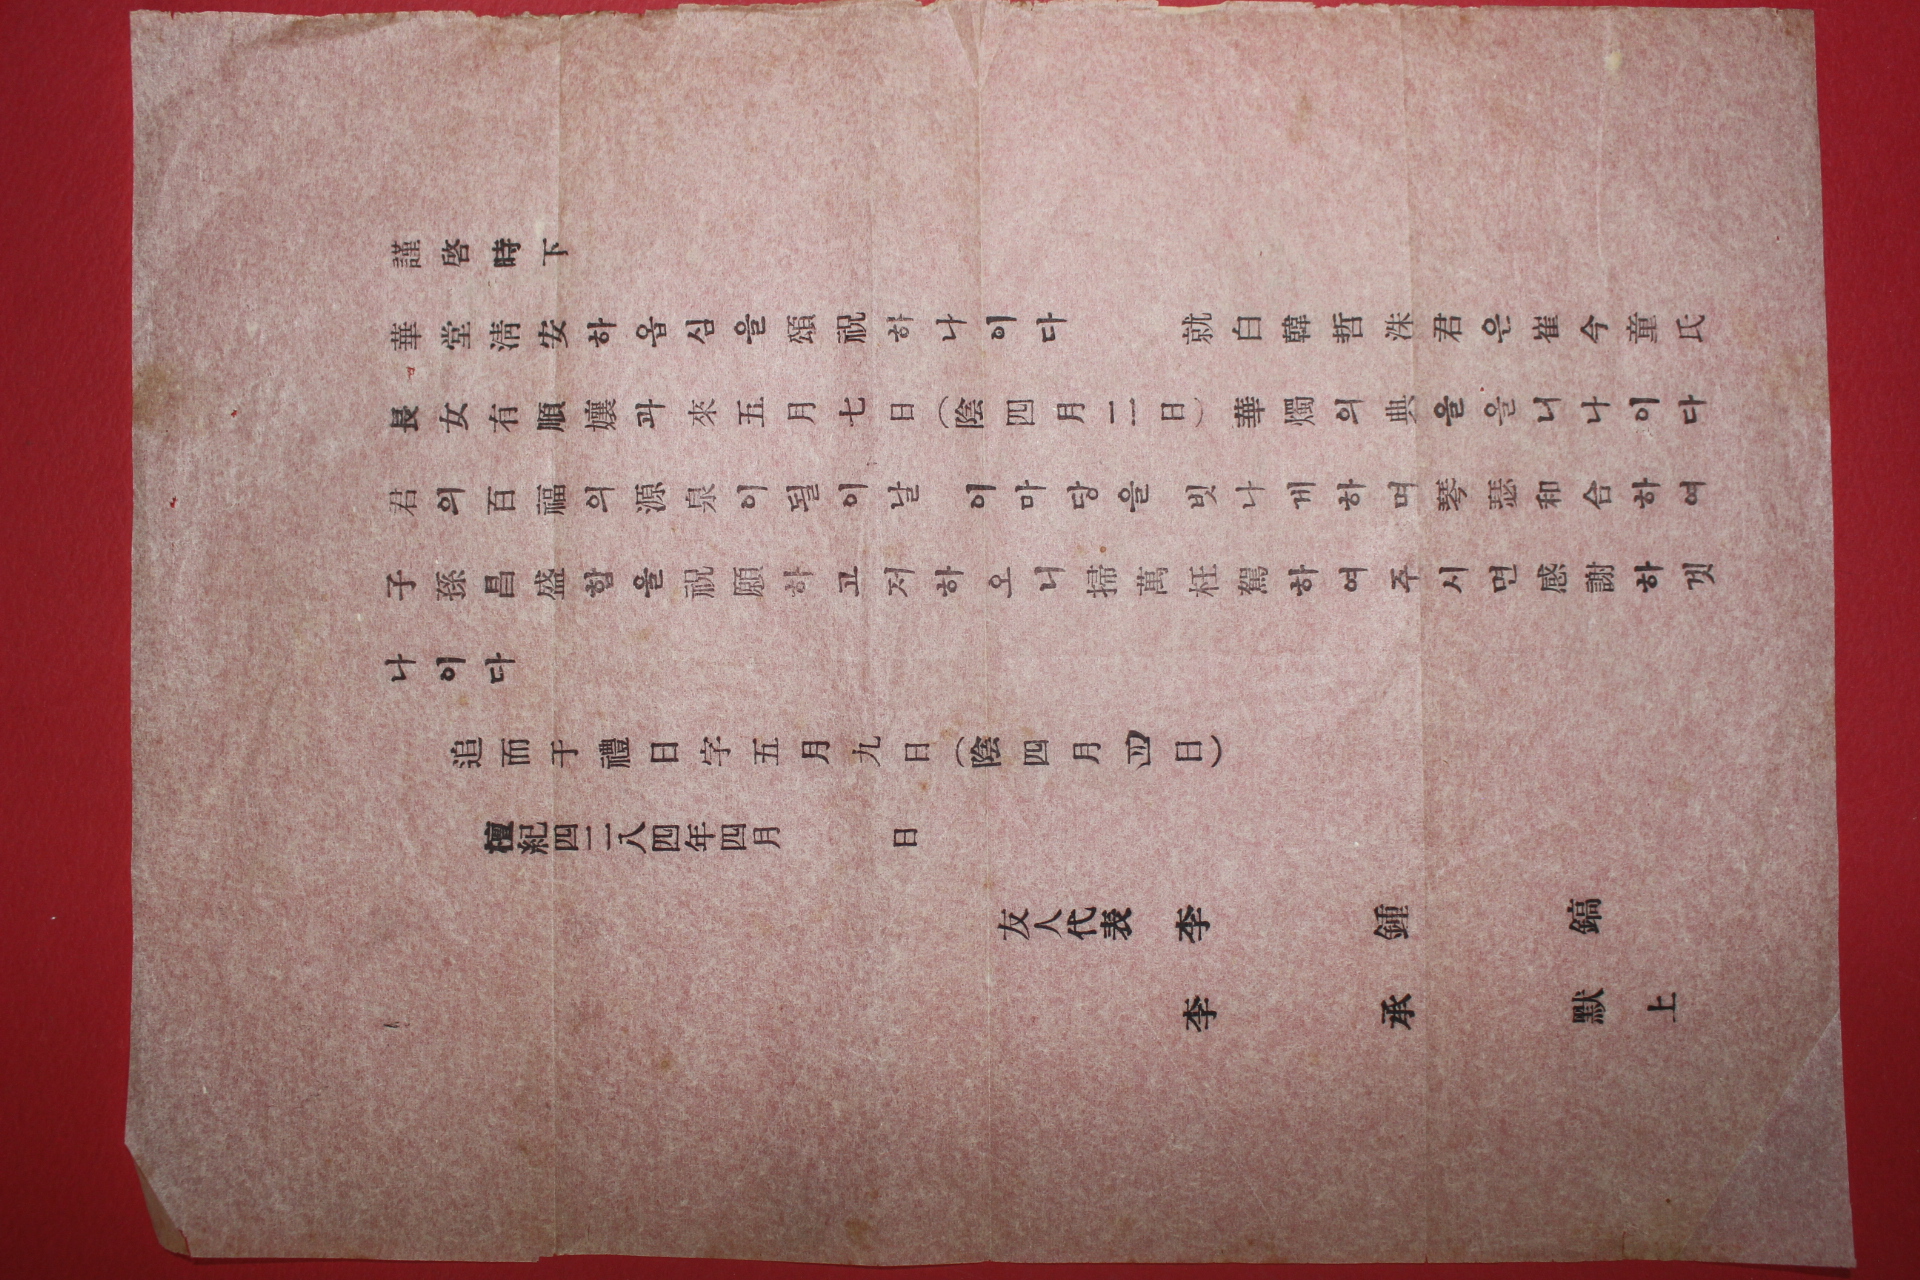 謹啓時下
華堂淸安하옵심을頌祝하나이다 就白韓哲洙君은崔今童氏
長女有順孃과來五月七日(陰四月二日)華燭의典을을니나이다
君의百福의源泉이될이날 이마당을 빗나게하며琴瑟和合하여
子孫昌盛함을祝願하고저하오니掃萬枉駕하여주시면感謝하겟
나이다
追而于禮日字五月九日(陰四月四日)
檀紀四二八四年四月 日
友人代表 李 鍾 鎬
李 承 默 上